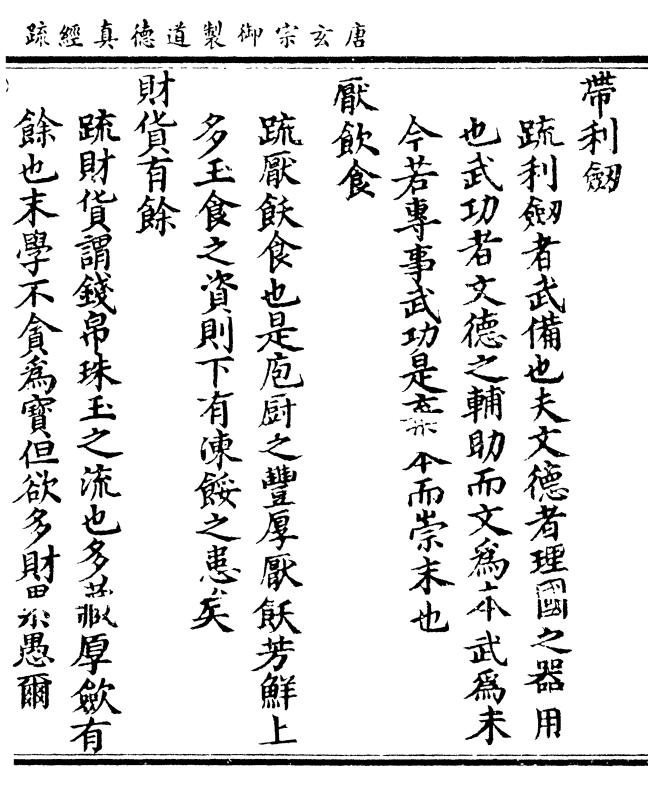 唐玄宗御製道德真經疏
帶利劔
疏利劔者武備也夫文德者理國之器用
也武功者文德之輔助而文為本武為末
今若專事武功是棄本而崇末也
厭飲食
疏厭飫食也是庖厨之豐厚厭飫芳鮮上
多玉食之資則下有凍餒之患矣
財貨有餘
疏財貨謂錢帛珠玉之流也多藏厚歛有
餘也末學不貪為寶但欲多財累愚爾